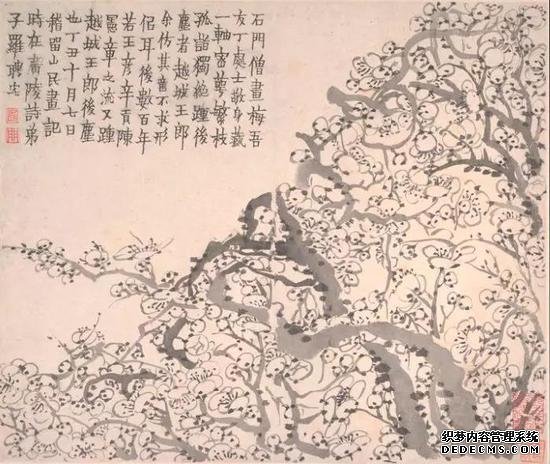 石門僧畫梅吾
友丁處士敬身藏
一軸密萼繁枝
孤詣獨絕踵後
塵者越城王郎
余仿其意不求形
佀耳後數百年
若王彥辛貢陳
憲章之流又踵
越城王郎後塵
也丁丑十月七日
稽留山民畫記
時在廣陵詩弟
子羅聘
织梦内容管理系统
DEDECMS.COM